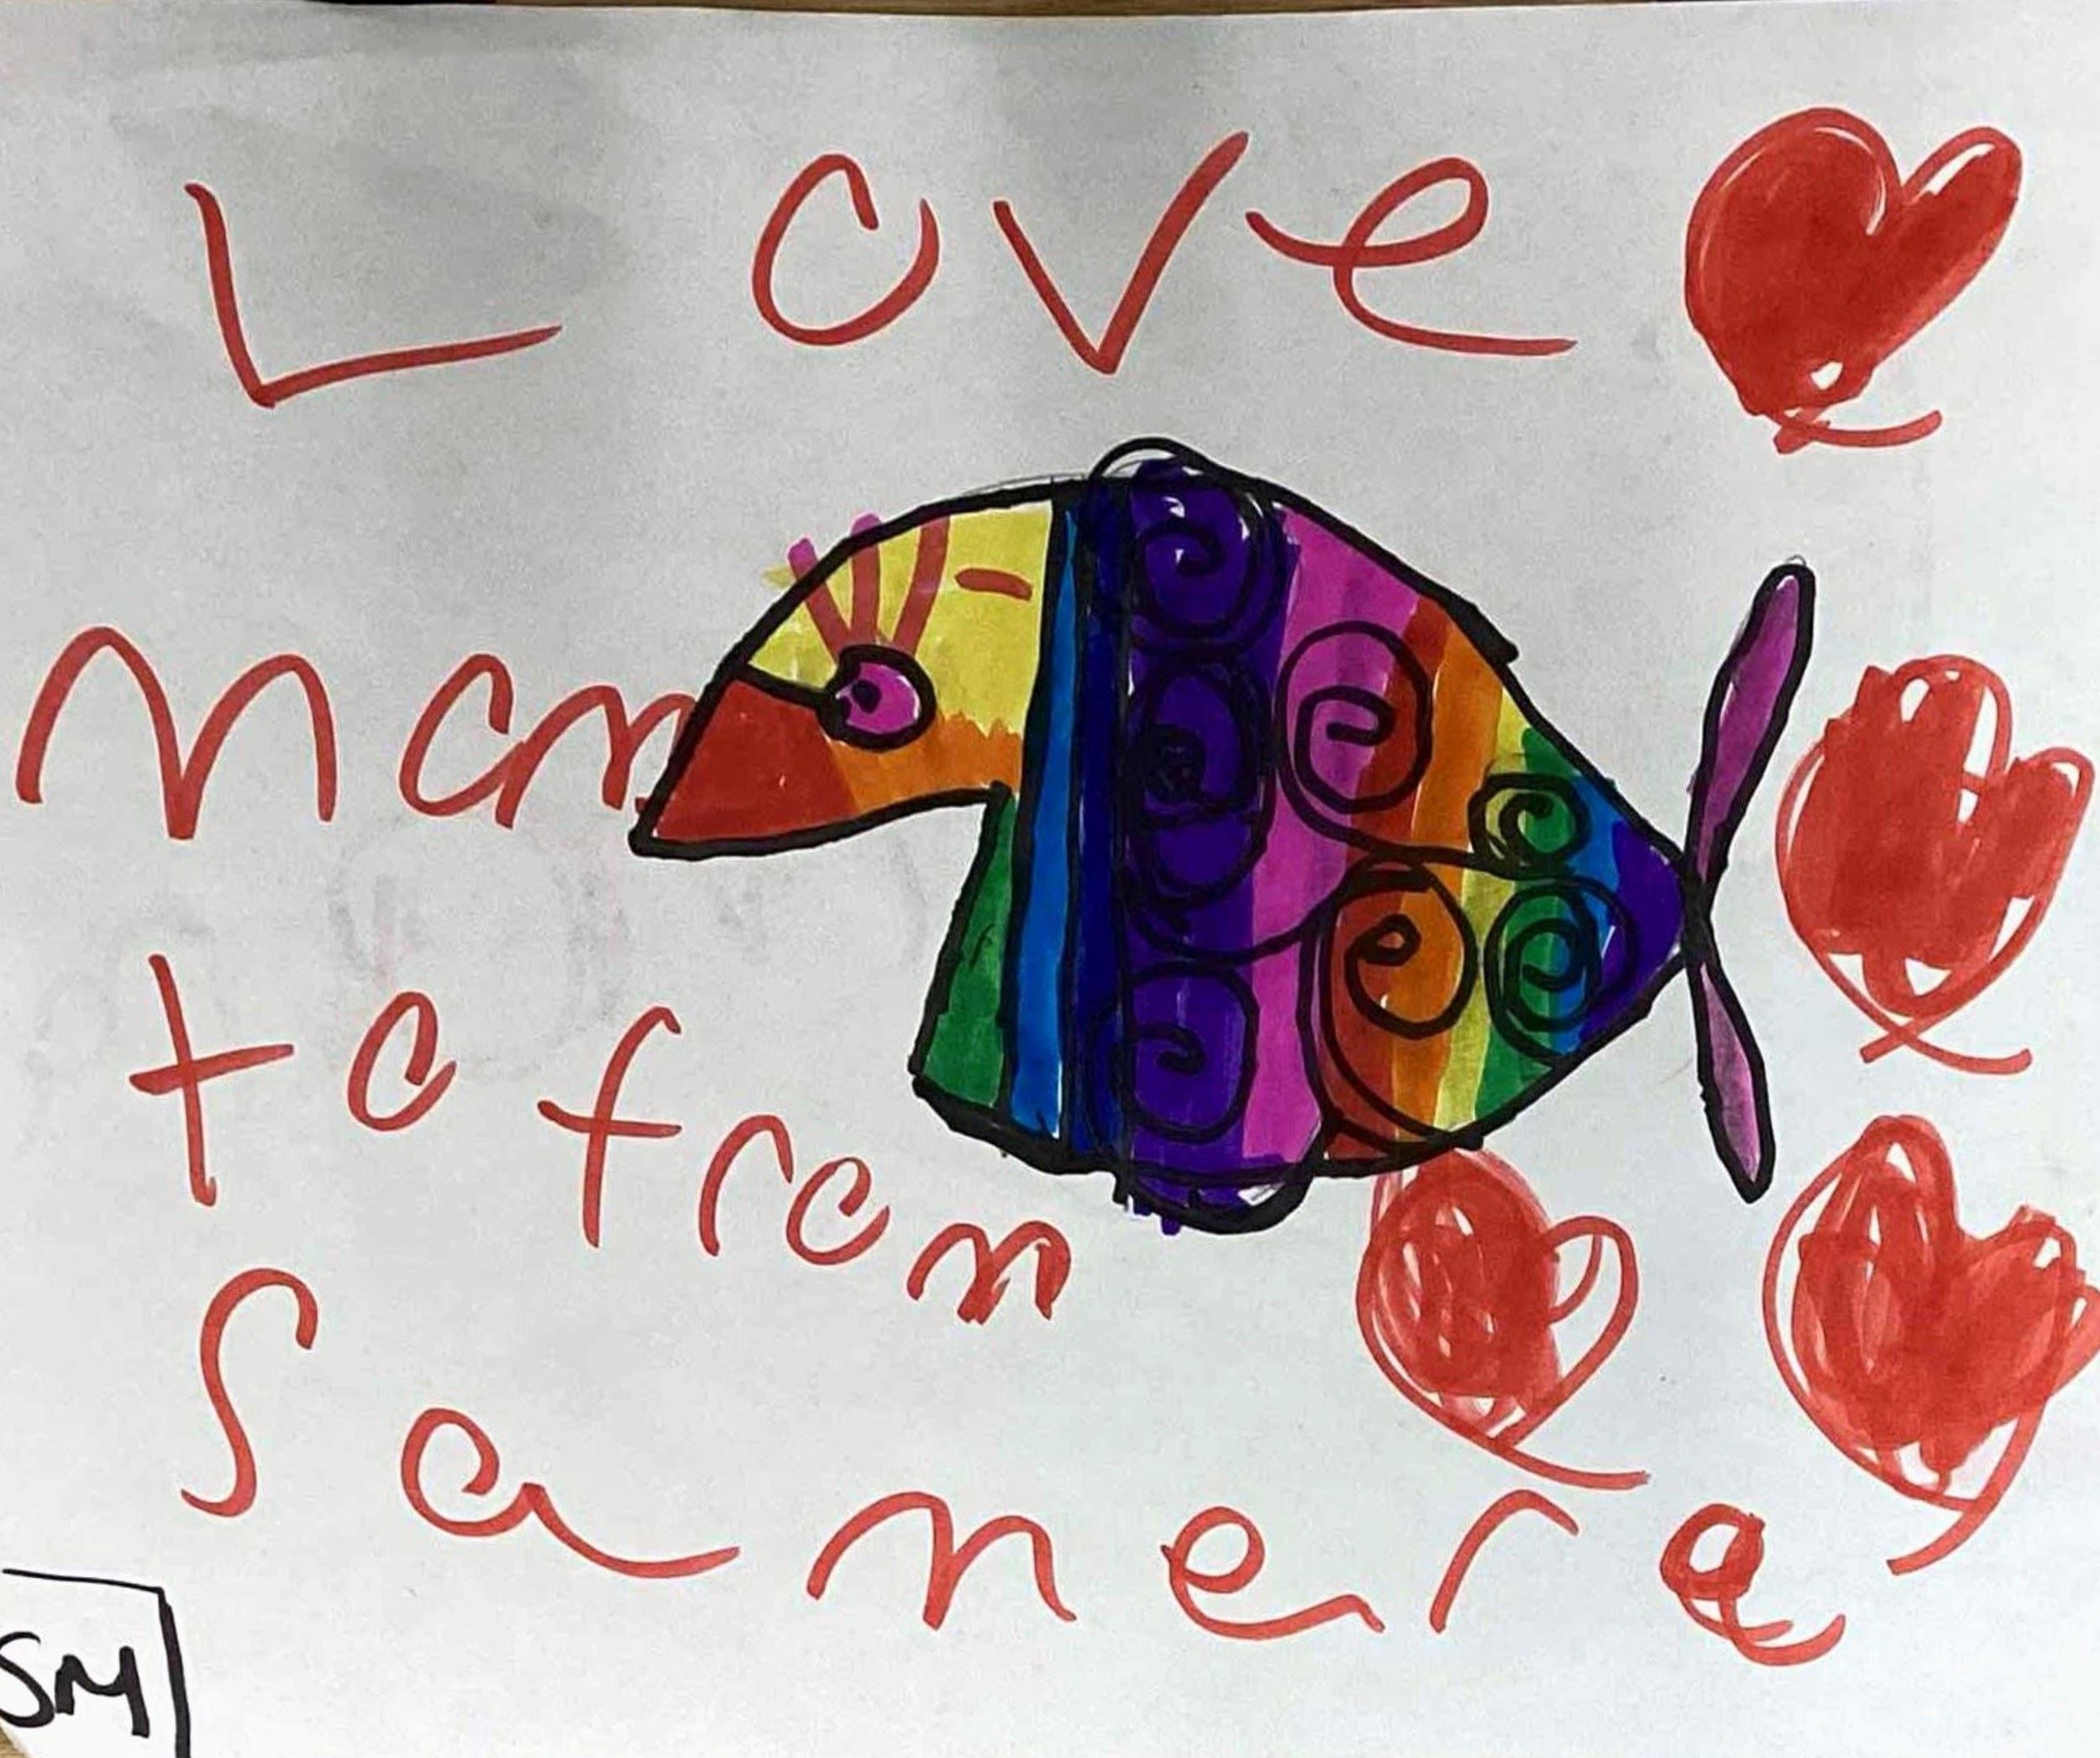 Love
mom
to from
Samera
SM